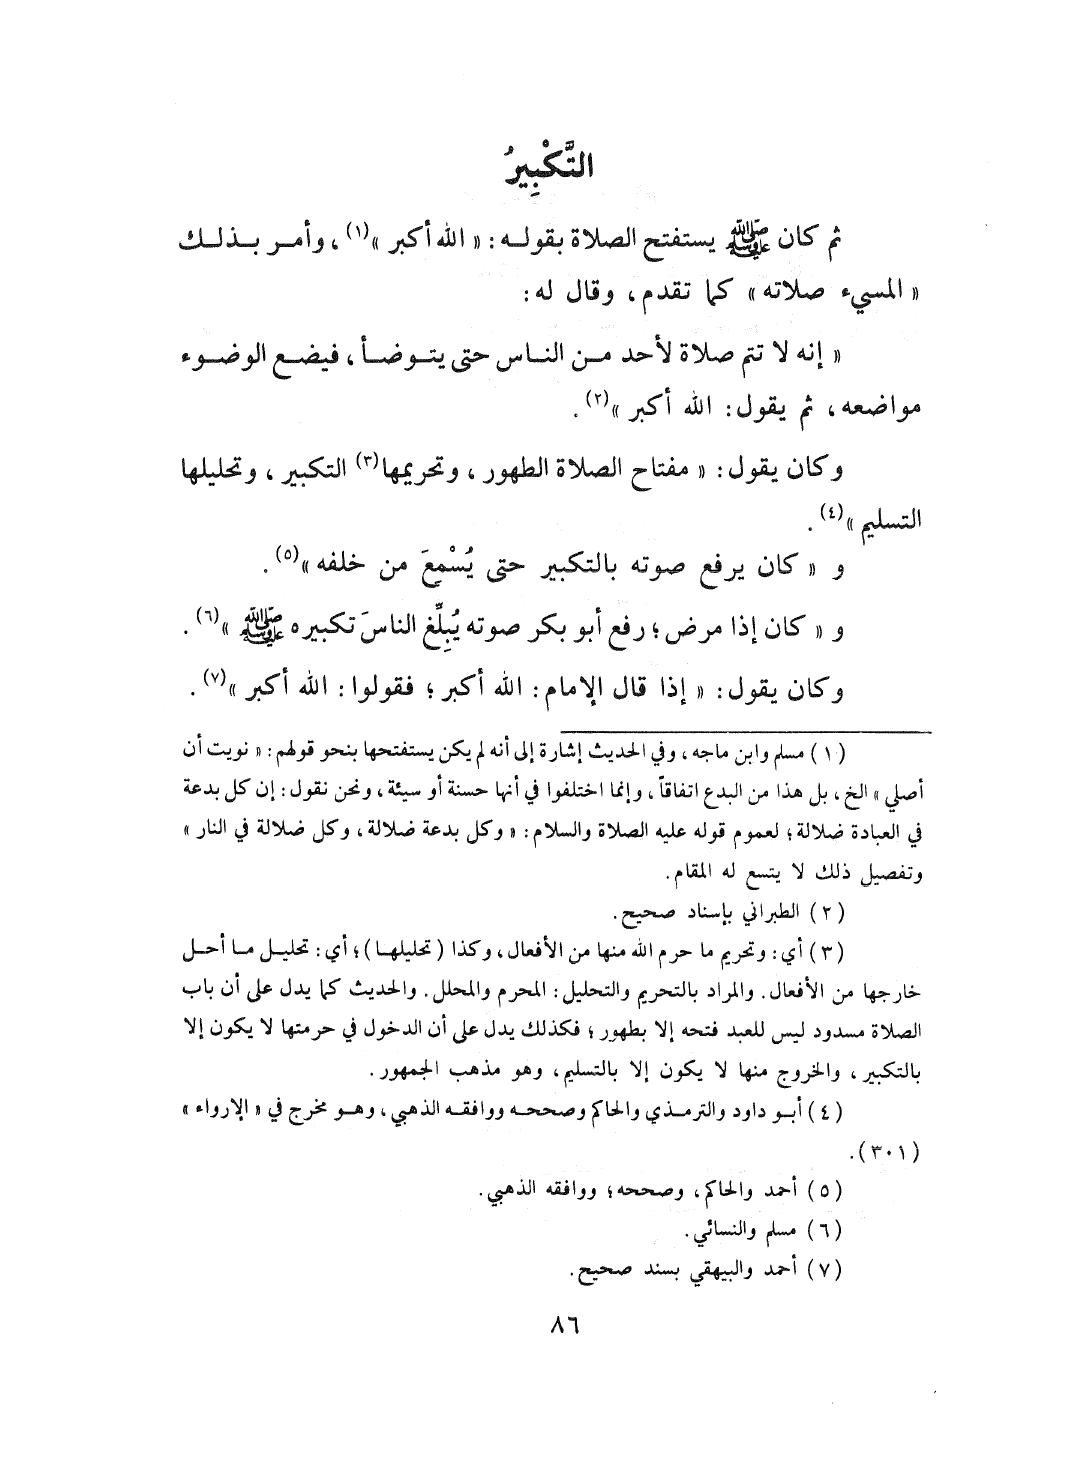 التَّكْبِيرُ
ثم كان ﷺ يستفتح الصلاة بقوله : « الله أكبر »(١) ، وأمر بذلك
« المسيء صلاته » كما تقدم ، وقال له :
« إنه لا تتم صلاة لأحد من الناس حتى يتوضأ ، فيضع الوضوء
مواضعه ، ثم يقول : الله أكبر »(٢) .
وكان يقول : « مفتاح الصلاة الطهور ، وتحريمها(٣) التكبير ، وتحليلها
التسليم »(٤) .
و « كان يرفع صوته بالتكبير حتى يُسْمِعَ من خلفه »(٥) .
و « كان إذا مرض ؛ رفع أبو بكر صوته يُبلِّغ الناسَ تكبيره ﷺ »(٦) .
وكان يقول : « إذا قال الإمام : الله أكبر ؛ فقولوا : الله أكبر »(٧) .
(١) مسلم وابن ماجه ، وفي الحديث إشارة إلى أنه لم يكن يستفتحها بنحو قولهم : « نويت أن
أصلي » الخ ، بل هذا من البدع اتفاقاً ، وإنما اختلفوا في أنها حسنة أو سيئة ، ونحن نقول : إن كل بدعة
في العبادة ضلالة ؛ لعموم قوله عليه الصلاة والسلام : « وكل بدعة ضلالة ، وكل ضلالة في النار »
وتفصيل ذلك لا يتسع له المقام .
(٢) الطبراني بإسناد صحيح .
(٣) أي : وتحريم ما حرم الله منها من الأفعال ، وكذا (تحليلها) ؛ أي : تحليل ما أحل
خارجها من الأفعال . والمراد بالتحريم والتحليل : المحرم والمحلل . والحديث كما يدل على أن باب
الصلاة مسدود ليس للعبد فتحه إلا بطهور ؛ فكذلك يدل على أن الدخول في حرمتها لا يكون إلا
بالتكبير ، والخروج منها لا يكون إلا بالتسليم ، وهو مذهب الجمهور .
(٤) أبو داود والترمذي والحاكم وصححه ووافقه الذهبي ، وهو مخرج في « الإرواء »
(٣٠١) .
(٥) أحمد والحاكم ، وصححه ؛ ووافقه الذهبي .
(٦) مسلم والنسائي .
(٧) أحمد والبيهقي بسند صحيح .
٨٦